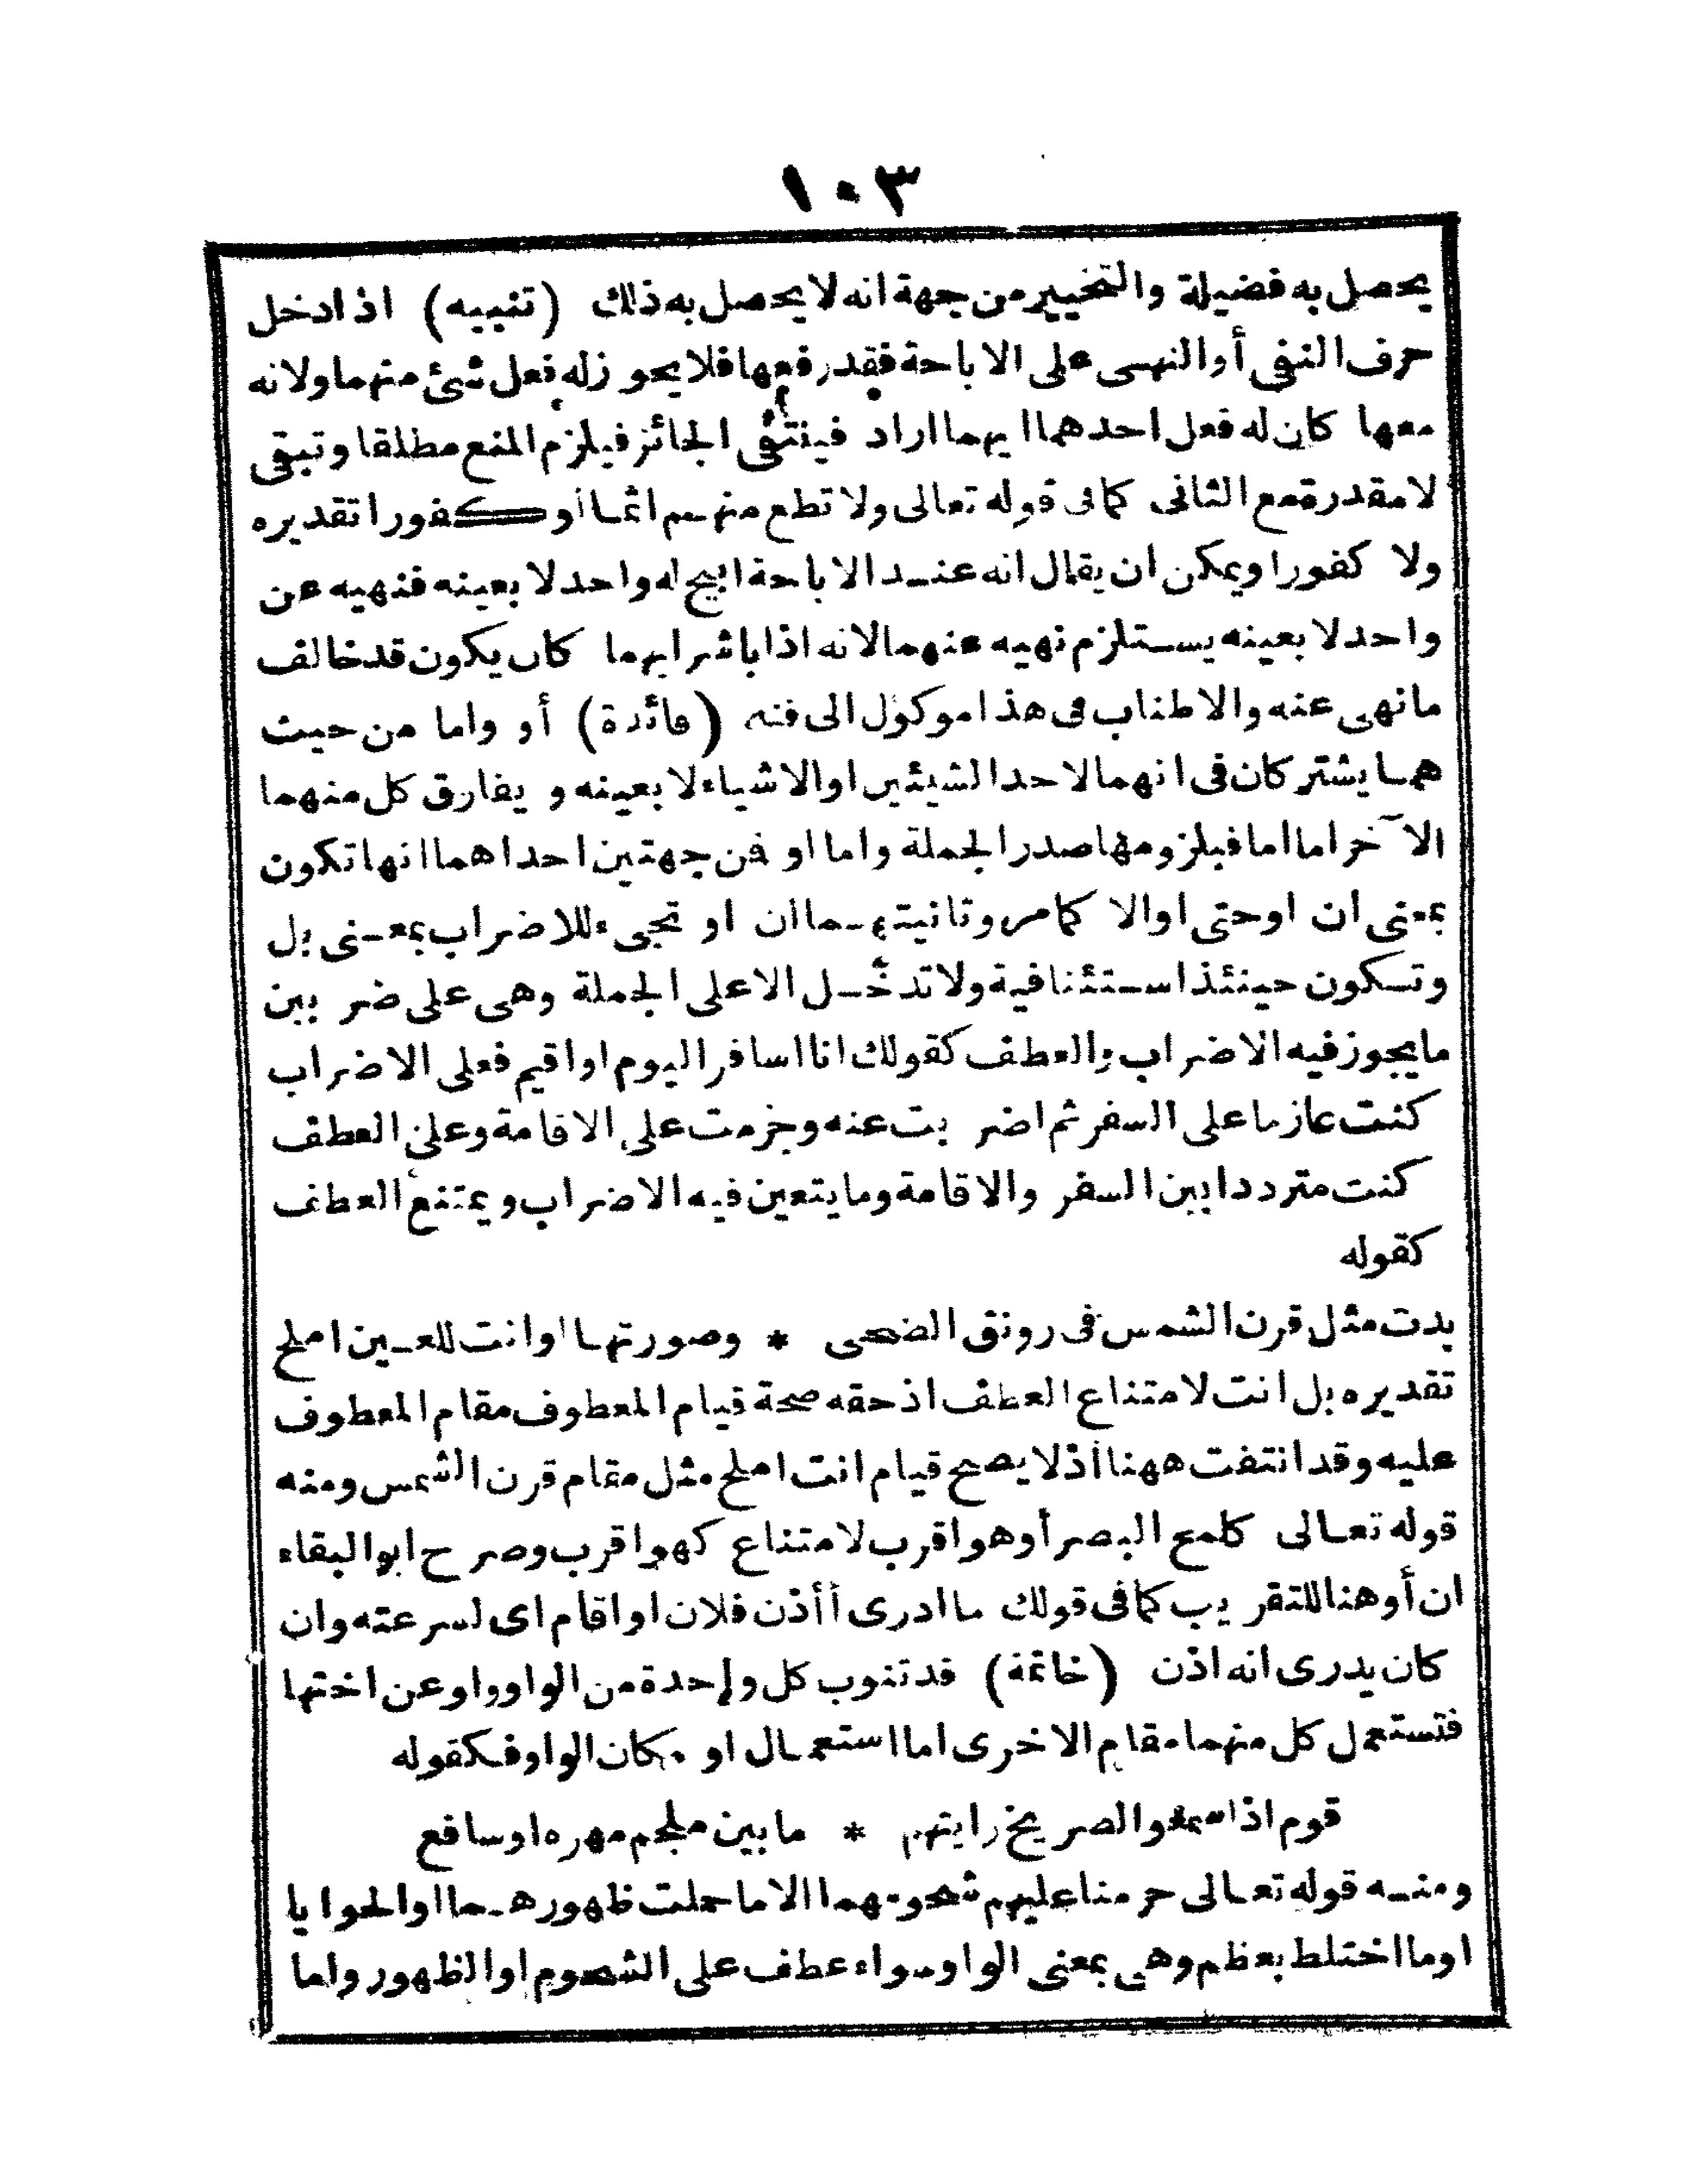 ١٠٣
يحصل به فضيلة والتخيير من جهة انه لا يحصل به ذلك (تنبيه) اذا دخل
حرف النفى أو النهى على الاباحة فقد رفعها فلا يجوز له فعل شئ منهما ولانه
معها كان له فعل احدهما ايهما اراد فينتفى الجائز فيلزم المنع مطلقا وتبقى
لا مقدرة مع الثانى كما فى قوله تعالى ولا تطع منهم اثما أو كفورا تقديره
ولا كفورا ويمكن ان يقال انه عند الاباحة ابيح له واحد لا بعينه فنهيه عن
واحد لا بعينه يستلزم نهيه عنهما لانه اذا باشر ايهما كان يكون قد خالف
ما نهى عنه والاطناب فى هذا موكول الى فنه (فائدة) أو واما من حيث
هما يشتركان فى انهما لاحد الشيئين او الاشياء لا بعينه و يفارق كل منهما
الآخر اما اما فبلزومها صدر الجملة واما او فمن جهتين احداهما انها تكون
بمعنى ان او حتى او الا كما مر وثانيتهما ان او تجىء للاضراب بمعنى بل
وتكون حينئذ استئنافية ولا تدخل الا على الجملة وهى على ضر بين
ما يجوز فيه الاضراب والعطف كقولك انا اسافر اليوم او اقيم فعلى الاضراب
كنت عازما على السفر ثم اضر بت عنه وجزمت على الاقامة وعلى العطف
كنت مترددا بين السفر والاقامة وما يتعين فيه الاضراب ويمتنع العطف
كقوله
بدت مثل قرن الشمس فى رونق الضحى * وصورتها او انت للعين املح
تقديره بل انت لامتناع العطف اذ حقه صحة قيام المعطوف مقام المعطوف
عليه وقد انتفت ههنا اذ لا يصح قيام انت املح مثل مقام قرن الشمس ومنه
قوله تعالى كلمح البصر أو هو اقرب لامتناع كهو اقرب وصر ح ابو البقاء
ان أو هنا للتقر يب كما فى قولك ما ادرى أأذن فلان او اقام اى لسرعته وان
كان يدرى انه اذن (خاتمة) قد تنوب كل واحدة من الواو واو عن اختها
فتستعمل كل منهما مقام الاخرى اما استعمال او مكان الواو فكقوله
قوم اذا سمعوا الصريخ رايتهم * ما بين ملجم مهره او سافع
ومنه قوله تعالى حرمنا عليهم شحومهما الا ما حملت ظهورهما او الحوايا
او ما اختلط بعظم وهى بمعنى الواو سواء عطف على الشحوم او الظهور واما